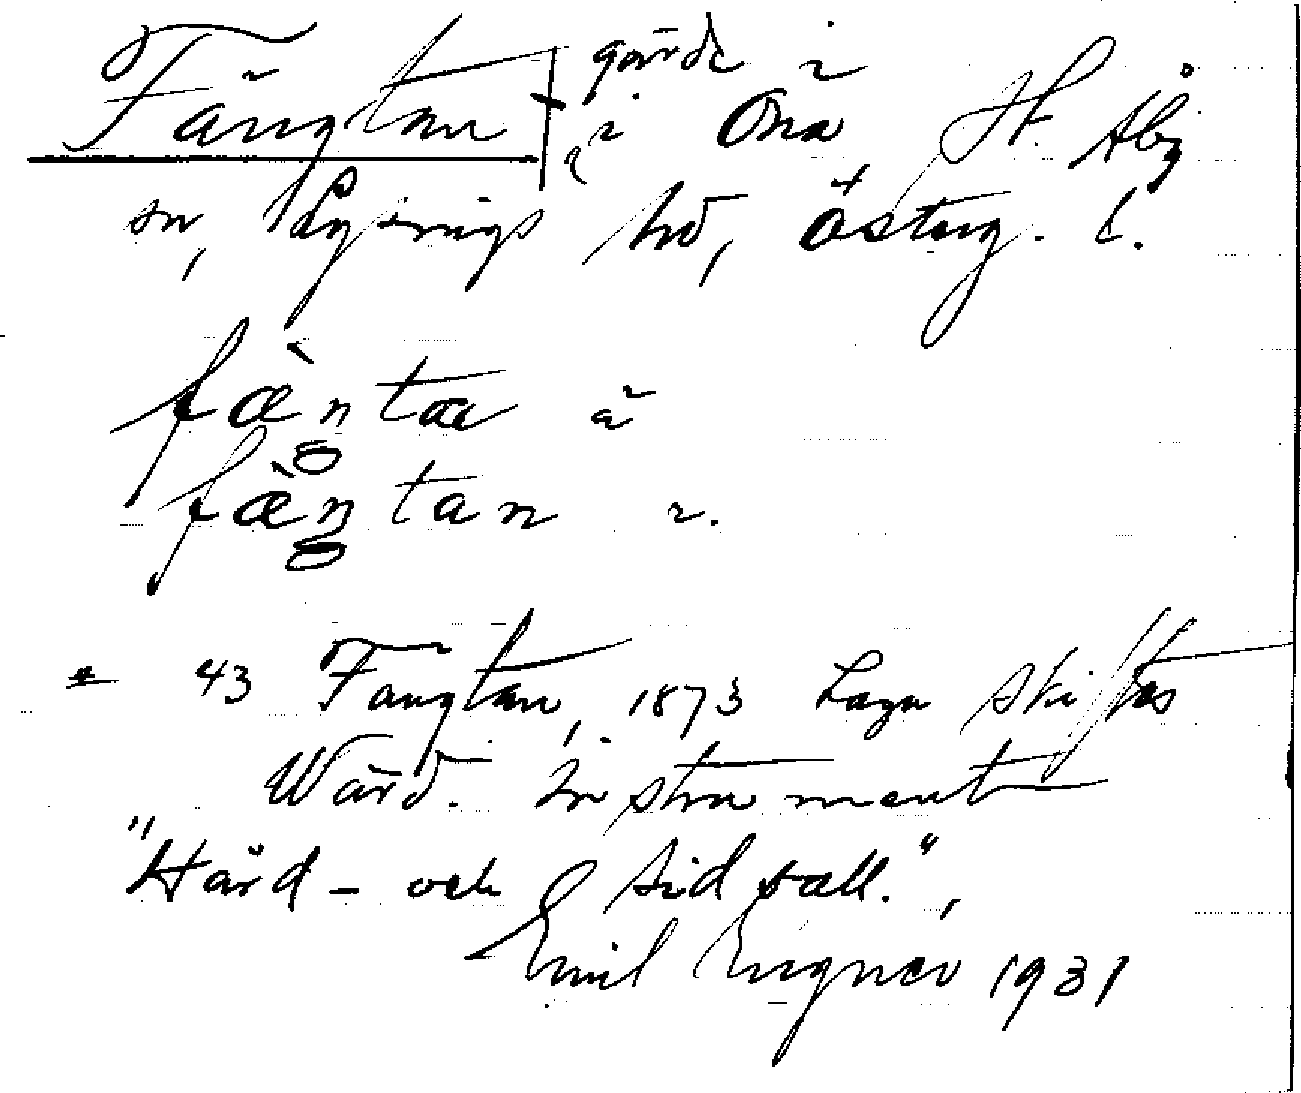 Fängtan gärde i
i Öna, H. Åby
sn, Lysings hd, Österg. l.
fæ̀ntaa a
fæ̀ntan
43 Fangtan, 1873 Laga skiftes
Värd. Instrument
"Hård- och sidvall.",
Emil Engnér 1931